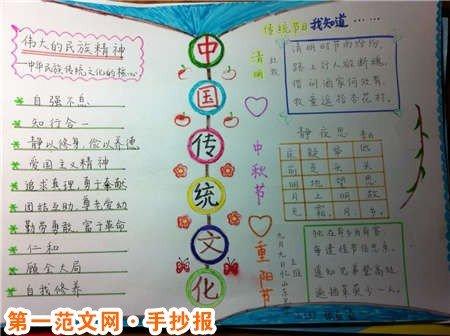 伟大的民族精神
—中华民族传统文化的核心
自强不息
知行合一
静以修身,俭以养德
爱国主义精神
追求真理,勇于奉献
团结互助,尊老爱幼
勤劳勇敢,富于革命
仁和
顾全大局
自我修养
中国传统文化
传统节日我知道……
清明
杜牧
清明时节雨纷纷,
路上行人欲断魂。
借问酒家何处有,
牧童遥指杏花村。
中秋节
静夜思
李白
床疑举低
前是头头
明地望思
月上明故
光,霜。月,乡。
重阳节
九月九日忆山东兄弟
王维
独在异乡为异客,
每逢佳节倍思亲。
遥知兄弟登高处,
遍插茱萸少一人。
第一范文网·手抄报